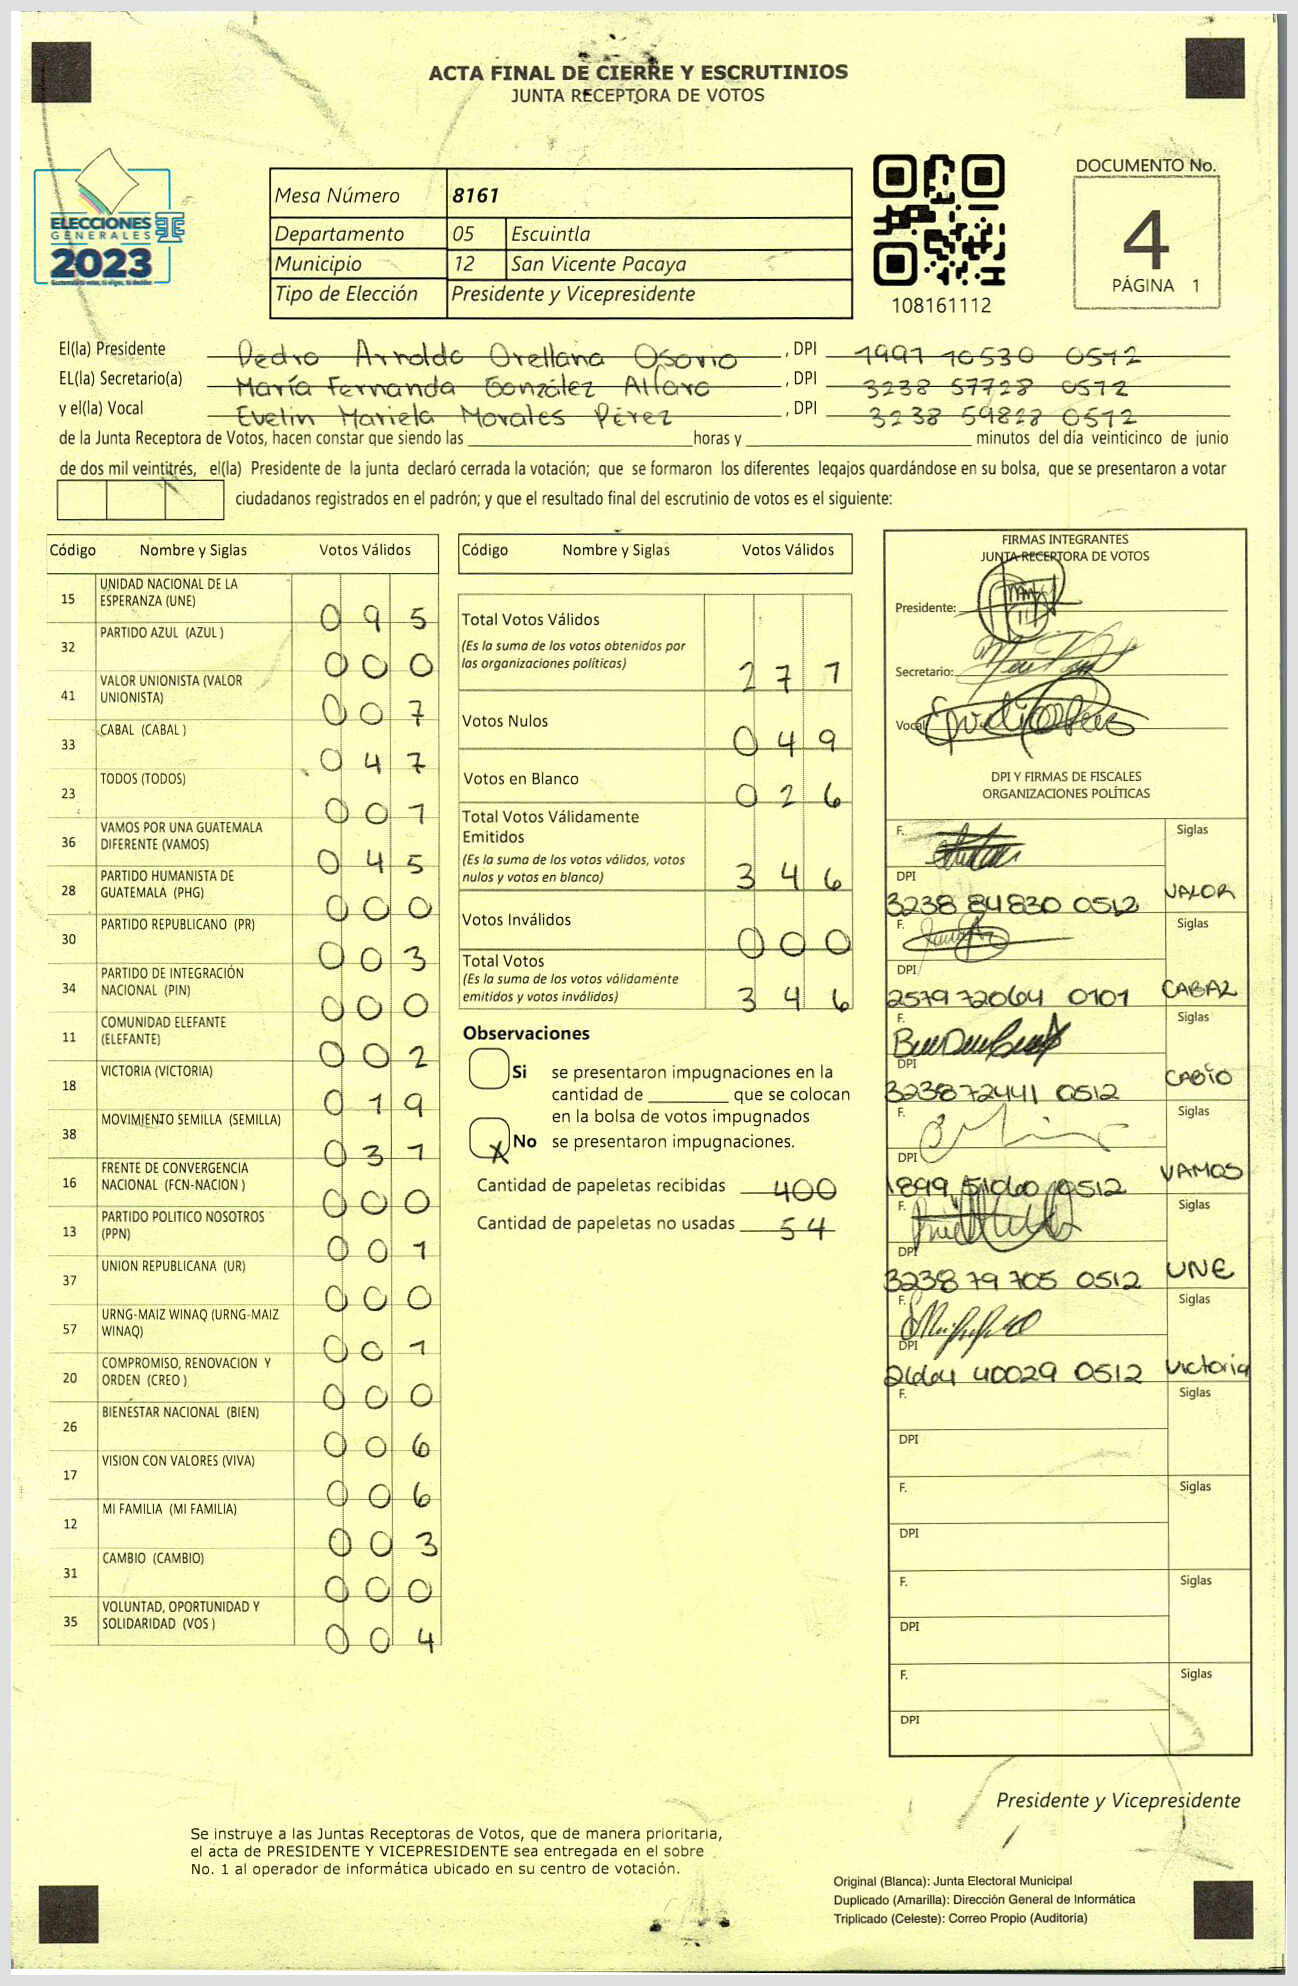 ACTA FINAL DE CIERRE Y ESCRUTINIOS
JUNTA RECEPTORA DE VOTOS
ELECCIONES
GENERALES
2023
Mesa Número 8161
Departamento 05 Escuintla
Municipio 12 San Vicente Pacaya
Tipo de Elección Presidente y Vicepresidente
108161112
DOCUMENTO No.
4
PÁGINA 1
El(la) Presidente Pedro Arnoldo Orellana Osorio, DPI 1991 10530 0512
EL(la) Secretario(a) María Fernanda González Alfaro, DPI 3238 57728 0512
y el(la) Vocal Evelin Mariela Morales Pérez, DPI 3238 59828 0512
de la Junta Receptora de Votos, hacen constar que siendo las ____ horas y ____ minutos del día veinticinco de junio
de dos mil veintitrés, el(la) Presidente de la junta declaró cerrada la votación; que se formaron los diferentes legajos guardándose en su bolsa, que se presentaron a votar
ciudadanos registrados en el padrón; y que el resultado final del escrutinio de votos es el siguiente:
Código Nombre y Siglas Votos Válidos
15 UNIDAD NACIONAL DE LA ESPERANZA (UNE) 0 9 5
32 PARTIDO AZUL (AZUL ) 0 0 0
41 VALOR UNIONISTA (VALOR UNIONISTA) 0 0 7
33 CABAL (CABAL ) 0 4 7
23 TODOS (TODOS) 0 0 1
36 VAMOS POR UNA GUATEMALA DIFERENTE (VAMOS) 0 4 5
28 PARTIDO HUMANISTA DE GUATEMALA (PHG) 0 0 0
30 PARTIDO REPUBLICANO (PR) 0 0 3
34 PARTIDO DE INTEGRACIÓN NACIONAL (PIN) 0 0 0
11 COMUNIDAD ELEFANTE (ELEFANTE) 0 0 2
18 VICTORIA (VICTORIA) 0 1 9
38 MOVIMIENTO SEMILLA (SEMILLA) 0 3 7
16 FRENTE DE CONVERGENCIA NACIONAL (FCN-NACION ) 0 0 0
13 PARTIDO POLITICO NOSOTROS (PPN) 0 0 1
37 UNION REPUBLICANA (UR) 0 0 0
57 URNG-MAIZ WINAQ (URNG-MAIZ WINAQ) 0 0 1
20 COMPROMISO, RENOVACION Y ORDEN (CREO ) 0 0 0
26 BIENESTAR NACIONAL (BIEN) 0 0 6
17 VISION CON VALORES (VIVA) 0 0 6
12 MI FAMILIA (MI FAMILIA) 0 0 3
31 CAMBIO (CAMBIO) 0 0 0
35 VOLUNTAD, OPORTUNIDAD Y SOLIDARIDAD (VOS ) 0 0 4
Código Nombre y Siglas Votos Válidos
Total Votos Válidos
(Es la suma de los votos obtenidos por
las organizaciones políticas) 2 7 7
Votos Nulos 0 4 9
Votos en Blanco 0 2 6
Total Votos Válidamente
Emitidos
(Es la suma de los votos válidos, votos
nulos y votos en blanco) 3 4 6
Votos Inválidos 0 0 0
Total Votos
(Es la suma de los votos válidaménte
emitidos y votos inválidos) 3 4 6
Observaciones
Si se presentaron impugnaciones en la
cantidad de ____ que se colocan
en la bolsa de votos impugnados
X No se presentaron impugnaciones.
Cantidad de papeletas recibidas 400
Cantidad de papeletas no usadas 54
FIRMAS INTEGRANTES
JUNTA RECEPTORA DE VOTOS
Presidente:
Secretario:
Vocal
DPI Y FIRMAS DE FISCALES
ORGANIZACIONES POLÍTICAS
F. Siglas
DPI
3238 84830 0512 VALOR
F. Siglas
DPI
2579 72064 0101 CABAL
F. Siglas
DPI
3238 72441 0512
F. Siglas
DPI
1899 51060 0512 VAMOS
F. Siglas
DPI
3238 79 705 0512 UNE
F. Siglas
DPI
2664 40029 0512 Victoria
F. Siglas
DPI
F. Siglas
DPI
F. Siglas
DPI
F. Siglas
DPI
Presidente y Vicepresidente
Se instruye a las Juntas Receptoras de Votos, que de manera prioritaria,
el acta de PRESIDENTE Y VICEPRESIDENTE sea entregada en el sobre
No. 1 al operador de informática ubicado en su centro de votación.
Original (Blanca): Junta Electoral Municipal
Duplicado (Amarilla): Dirección General de Informática
Triplicado (Celeste): Correo Propio (Auditoría)